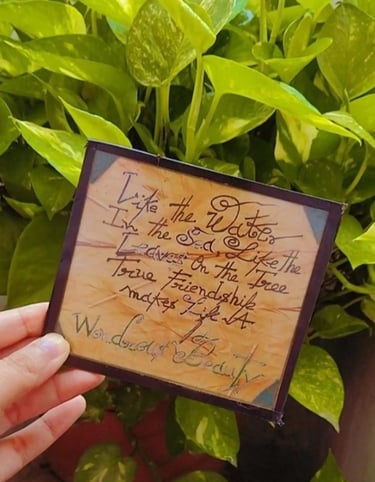 Like the Water
In the Sea Like the
Leaves On the Tree
True Friendship
makes Life A
Wonderful Beauty